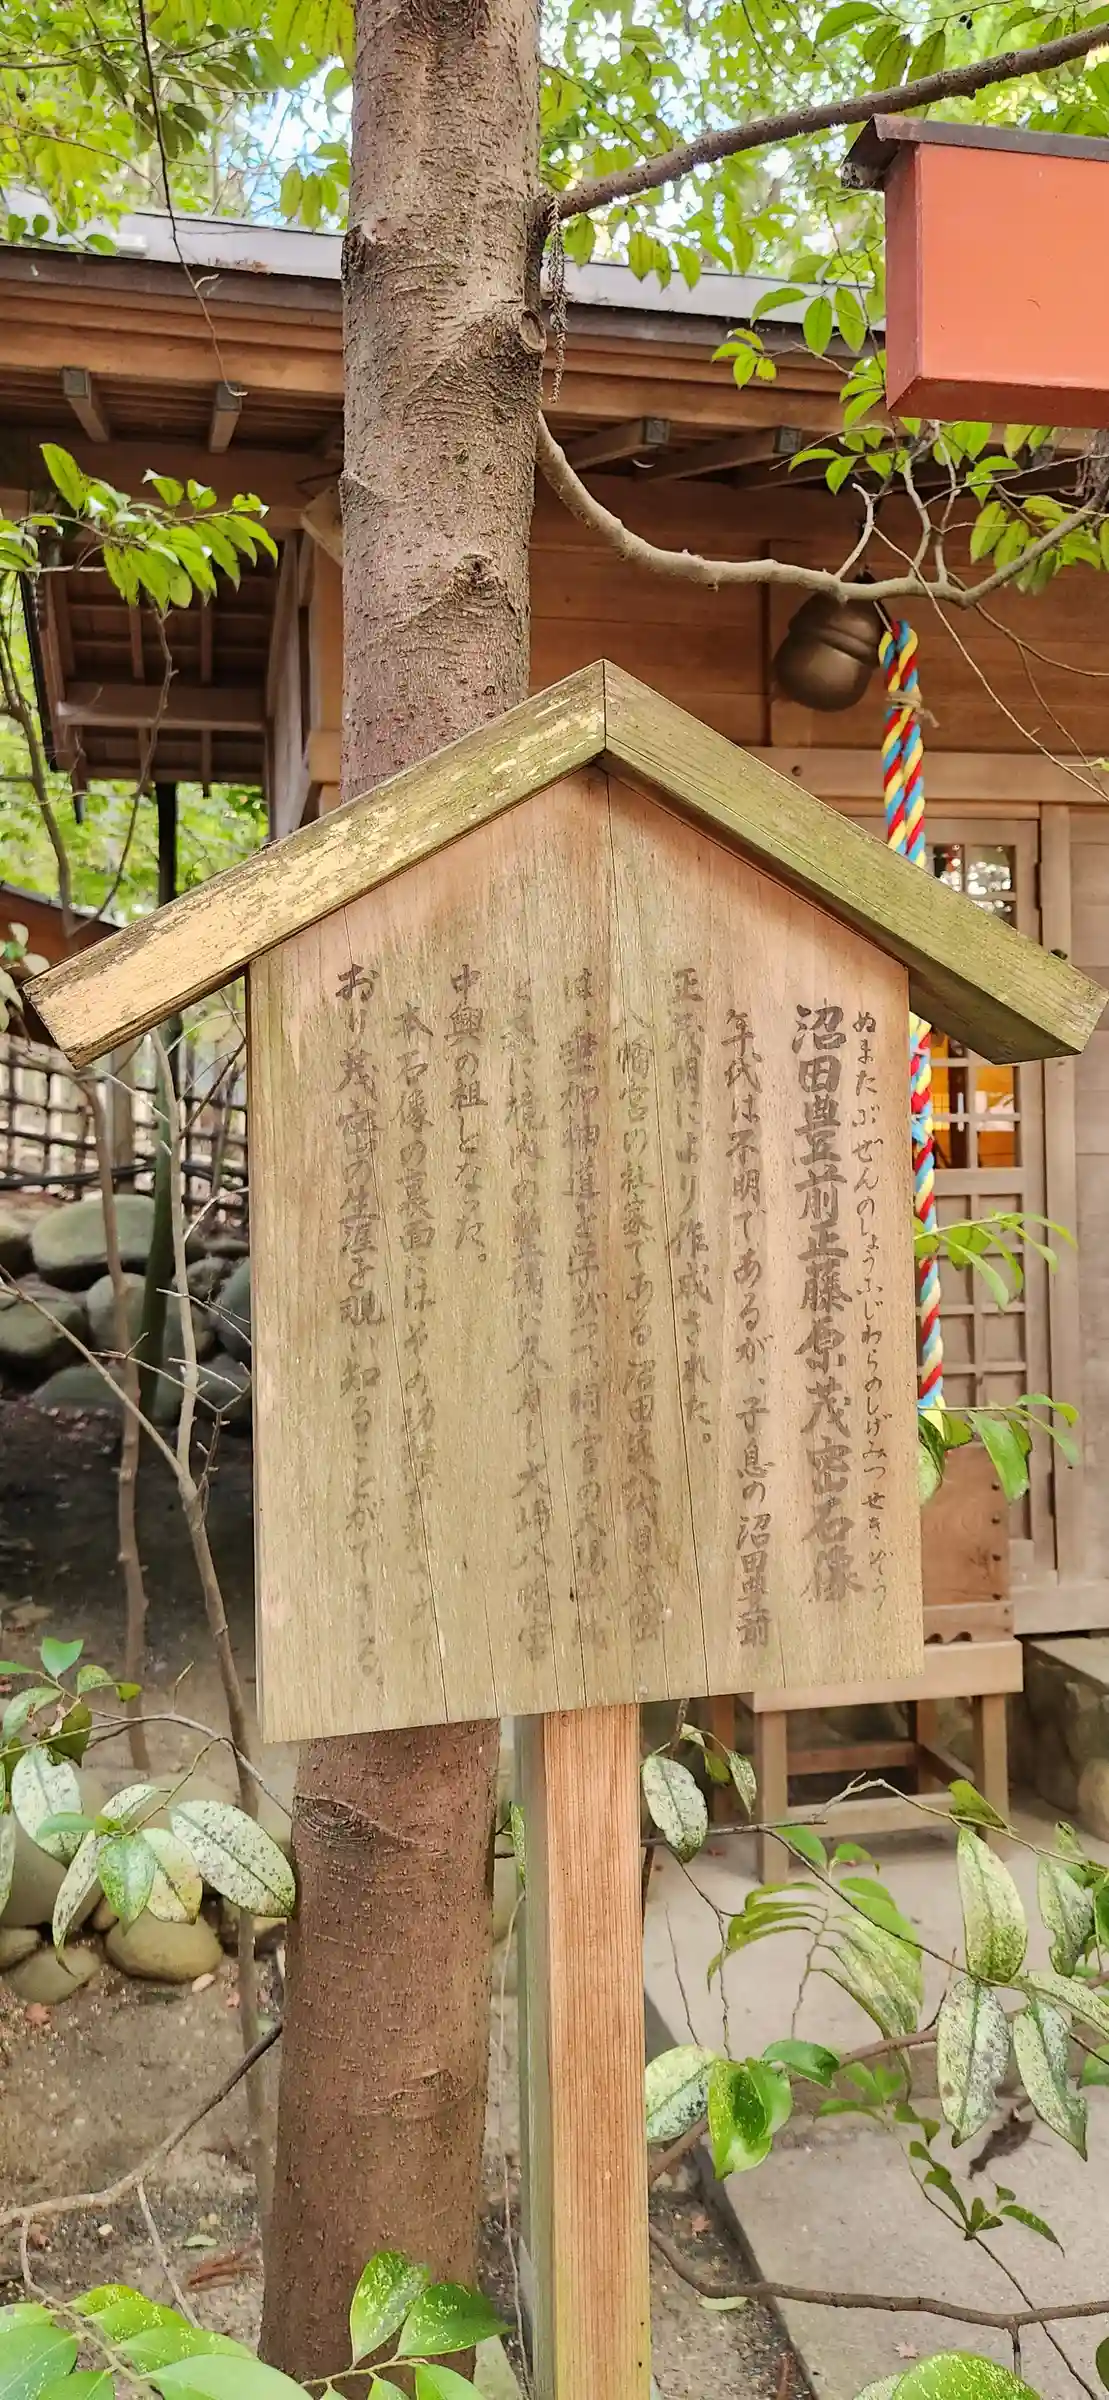 ぬまたぶぜんのしょうふじわらのしげみつせきぞう
沼田豊前正藤原茂密石像
年代は不明であるが、子息の沼田豊前
正茂明により作成された。
八幡宮の社家である沼田家八代目茂密
は、垂加神道を学びつつ、祠官の
とともに境内の整備に尽力し大崎八幡宮
中興の祖となった。
本石像の裏面にはその功績が
おり茂密の生涯を覗い知ることができる。